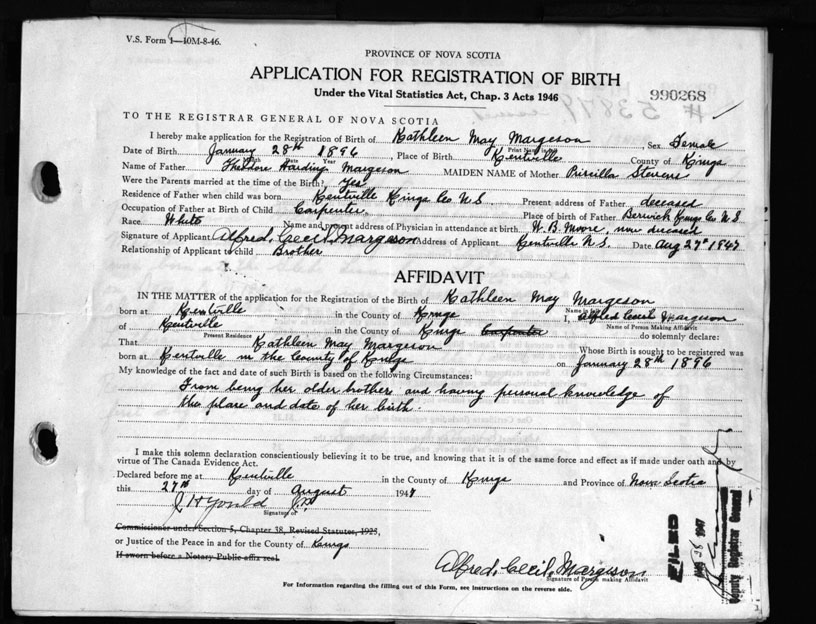 V.S. Form 1—10M-8-46.
PROVINCE OF NOVA SCOTIA
APPLICATION FOR REGISTRATION OF BIRTH
Under the Vital Statistics Act, Chap. 3 Acts 1946
990268
TO THE REGISTRAR GENERAL OF NOVA SCOTIA
I hereby make application for the Registration of Birth of Kathleen May Margeson, Sex Female
Print Name in full
Date of Birth January 28th 1896, Place of Birth Kentville County of Kings
Month Date Year
Name of Father Theodore Harding Margeson MAIDEN NAME of Mother Priscilla Stevens
Were the Parents married at the time of the Birth? Yes
Residence of Father when child was born Kentville Kings Co N.S. Present address of Father deceased
Occupation of Father at Birth of Child Carpenter Place of birth of Father Berwick Kings Co N.S
Race White Name and present address of Physician in attendance at birth W. B. Moore, now deceased
Signature of Applicant Alfred Cecil Margeson Address of Applicant Kentville N.S. Date Aug 27th 1947
Relationship of Applicant to child Brother
AFFIDAVIT
IN THE MATTER of the application for the Registration of the Birth of Kathleen May Margeson
born at Kentville in the County of Kings I, Alfred Cecil Margeson
Name of Person Making Affidavit
of Kentville in the County of Kings Carpenter do solemnly declare:
Present Residence
That Kathleen May Margeson Whose Birth is sought to be registered was
born at Kentville in the County of Kings on January 28th 1896
My knowledge of the fact and date of such Birth is based on the following Circumstances:
From being her older brother and having personal knowledge of
the place and date of her birth.
I make this solemn declaration conscientiously believing it to be true, and knowing that it is of the same force and effect as if made under oath and by
virtue of The Canada Evidence Act.
Declared before me at Kentville in the County of Kings and Province of Nova Scotia
this 27th day of August 1947
J.P.
Signature of
Commissioner under Section 5, Chapter 38, Revised Statutes, 1923,
or Justice of the Peace in and for the County of Kings
If sworn before a Notary Public affix seal.
Alfred Cecil Margeson
Signature of Person making Affidavit
For Information regarding the filling out of this Form, see instructions on the reverse side.
FILED
1947
Deputy Registrar General